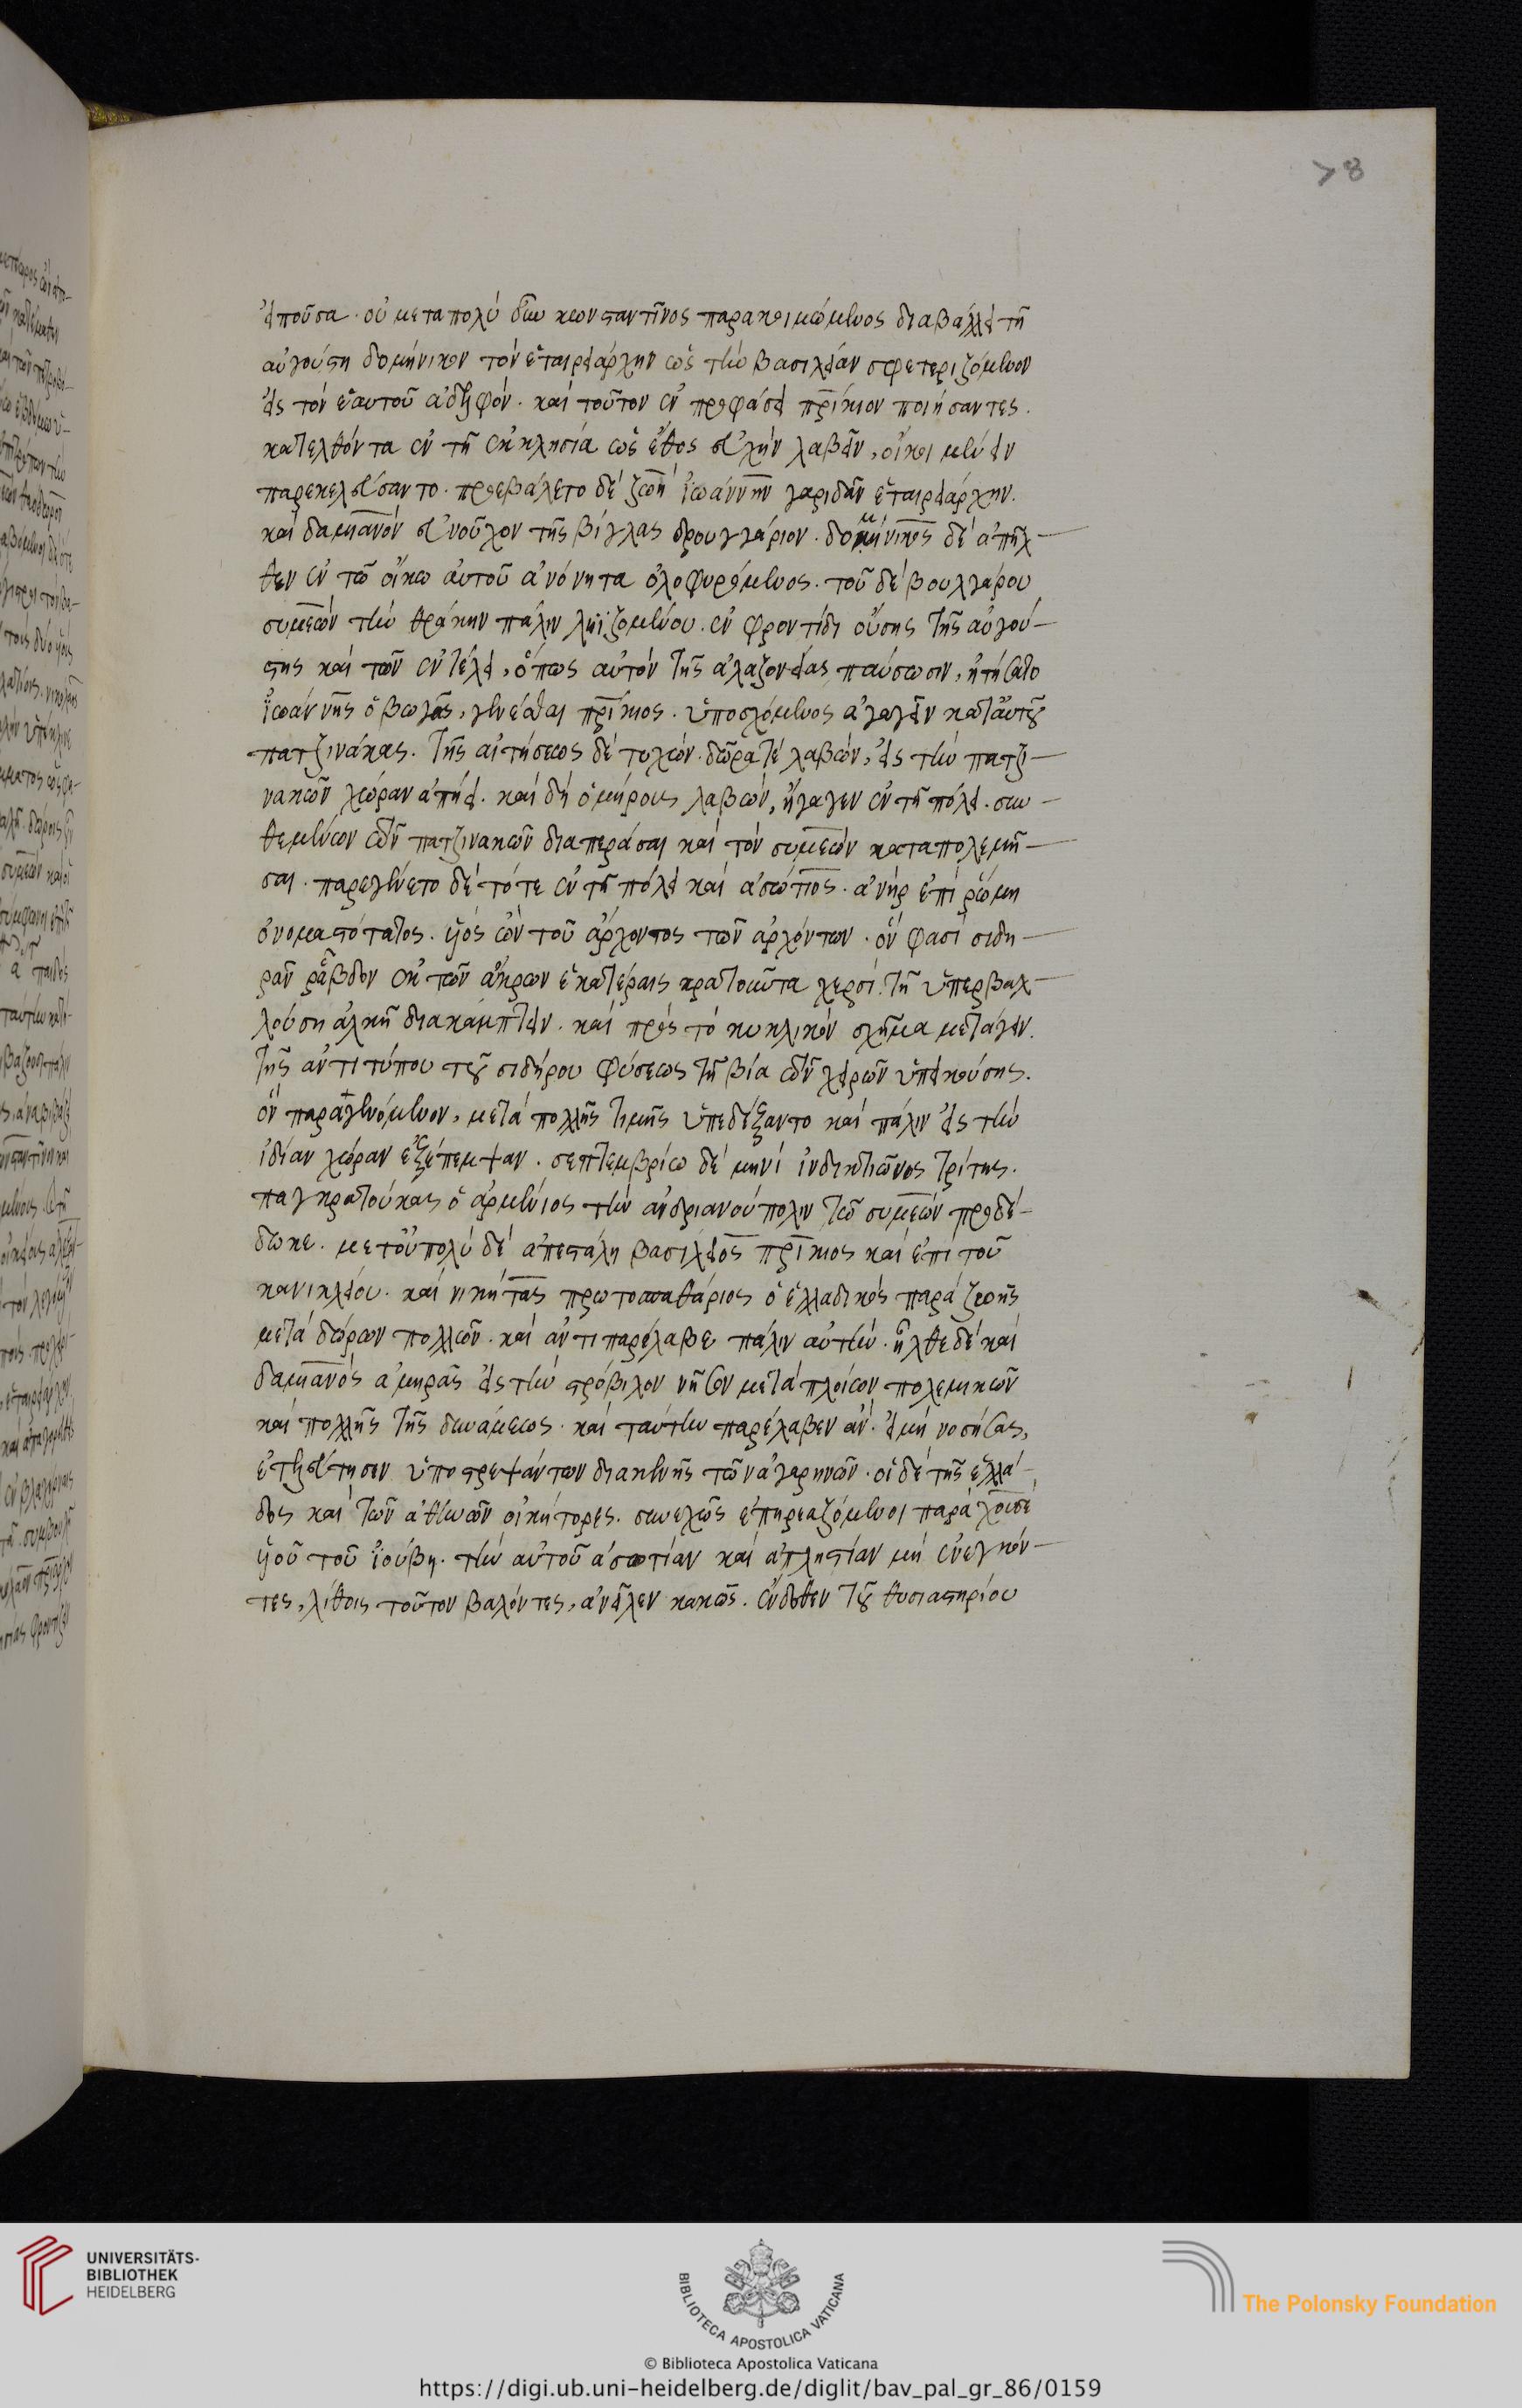 78
εἰποῦσα. οὐ μεταπολύ δ᾽ οὖν κωνσταντῖνος παρακοιμώμενος διαβάλλει τῆ
αὐγούστη δομήνικον τὸν ἑταιρειάρχην ὡς τὴν βασιλείαν σφετεριζόμενον
εἰς τὸν ἑαυτοῦ ἀδελφόν. καὶ τοῦτον ἐν προφάσει πρίκιον ποιήσαντες.
κατελθόντα ἐν τῆ ἐκκλησία ὡς ἔθος εὐχὴν λαβεῖν, οἴκοι μένειν
παρεκελεύσαντο. προεβάλετο δὲ ζωὴ ἰωάννην γαριδᾶν ἑταιρειάρχην.
καὶ δαμιανὸν εὐνοῦχον τῆς βίγλας δρουγγάριον. δομήνικος δὲ ἀπῆλ-
θεν ἐν τῶ οἴκω αὐτοῦ ἀνόνητα ὀλοφυρόμενος. τοῦ δὲ βουλγάρου
συμεὼν τὴν θράκην πάλιν ληϊζομένου. ἐν φροντίδι οὔσης τῆς αὐγού-
στης καὶ τῶν ἐν τέλει, ὅπως αὐτὸν τῆς ἀλαζονείας παύσωσιν, ἠτήσατο
ἰωάννης ὁ βωγᾶς, γενέσθαι πρίκιος. ὑποσχόμενος ἀγαγεῖν κατ᾽ αὐτοῦ
πατζινάκας. τῆς αἰτήσεως δὲ τυχών. δῶρά τε λαβών, εἰς τὴν πατζι-
νακῶν χώραν ἀπήει. καὶ δὴ ὁμήρους λαβών, ἤγαγεν ἐν τῆ πόλει. συν-
θεμένων τῶν πατζινακῶν διαπεράσαι καὶ τὸν συμεὼν καταπολεμῆ-
σαι. παρεγένετο δὲ τότε ἐν τῆ πόλει καὶ ἀσώτιος. ἀνὴρ ἐπὶ ῥώμη
ὀνομαστότατος. υἱὸς ὢν τοῦ ἄρχοντος τῶν ἀρχόντων. ὅν φασὶ σιδη-
ρᾶν ῥάβδον ἐκ τῶν ἄκρων ἑκατέραις κρατοῦντα χερσί. τῆ ὑπερβαλ-
λούση ἀλκῆ διακάμπτειν. καὶ πρὸς τὸ κυκλικὸν σχῆμα μετάγειν.
τῆς ἀντιτύπου τοῦ σιδήρου φύσεως τῆ βία τῶν χειρῶν ὑπεικούσης.
ὃν παραγενόμενον, μετὰ πολλῆς τιμῆς ὑπεδέξαντο καὶ πάλιν εἰς τὴν
ἰδίαν χώραν ἐξέπεμψαν. σεπτεμβρίω δὲ μηνὶ ἰνδικτιῶνος τρίτης.
παγκρατούκας ὁ ἀρμένιος τὴν ἀνδριανούπολιν τῶ συμεὼν προδέ-
δωκε. μετ᾽ οὐ πολὺ δὲ ἀπεστάλη βασίλειος πρίκιος καὶ ἐπὶ τοῦ
κανικλείου. καὶ νικήτας πρωτοσπαθάριος ὁ ἑλλαδικὸς παρὰ ζωῆς
μετὰ δώρων πολλῶν. καὶ ἀντιπαρέλαβε πάλιν αὐτήν. ἦλθε δὲ καὶ
δαμιανὸς ἀμηρᾶς εἰς τὴν στρόβιλον νῆσον μετὰ πλοίων πολεμικῶν
καὶ πολλῆς τῆς δυνάμεως. καὶ ταύτην παρέλαβεν ἄν. εἰ μὴ νοσήσας,
ἐτελεύτησεν ὑποστρεψάντων διακενῆς τῶν ἀγαρηνῶν. οἱ δὲ τῆς ἑλλά-
δος καὶ τῶν ἀθηνῶν οἰκήτορες. συνεχῶς ἐπηρεαζόμενοι παρὰ χασὲ
υἱοῦ τοῦ ἰούβη. τὴν αὐτοῦ ἀσωτίαν καὶ ἀπληστίαν μὴ ἐνεγκόν-
τες, λίθοις τοῦτον βαλόντες, ἀνεῖλεν κακῶς. ἔνδοθεν τοῦ θυσιαστηρίου
UNIVERSITÄTS-
BIBLIOTHEK
HEIDELBERG
BIBLIOTECA APOSTOLICA VATICANA
The Polonsky Foundation
© Biblioteca Apostolica Vaticana
https://digi.ub.uni-heidelberg.de/diglit/bav_pal_gr_86/0159